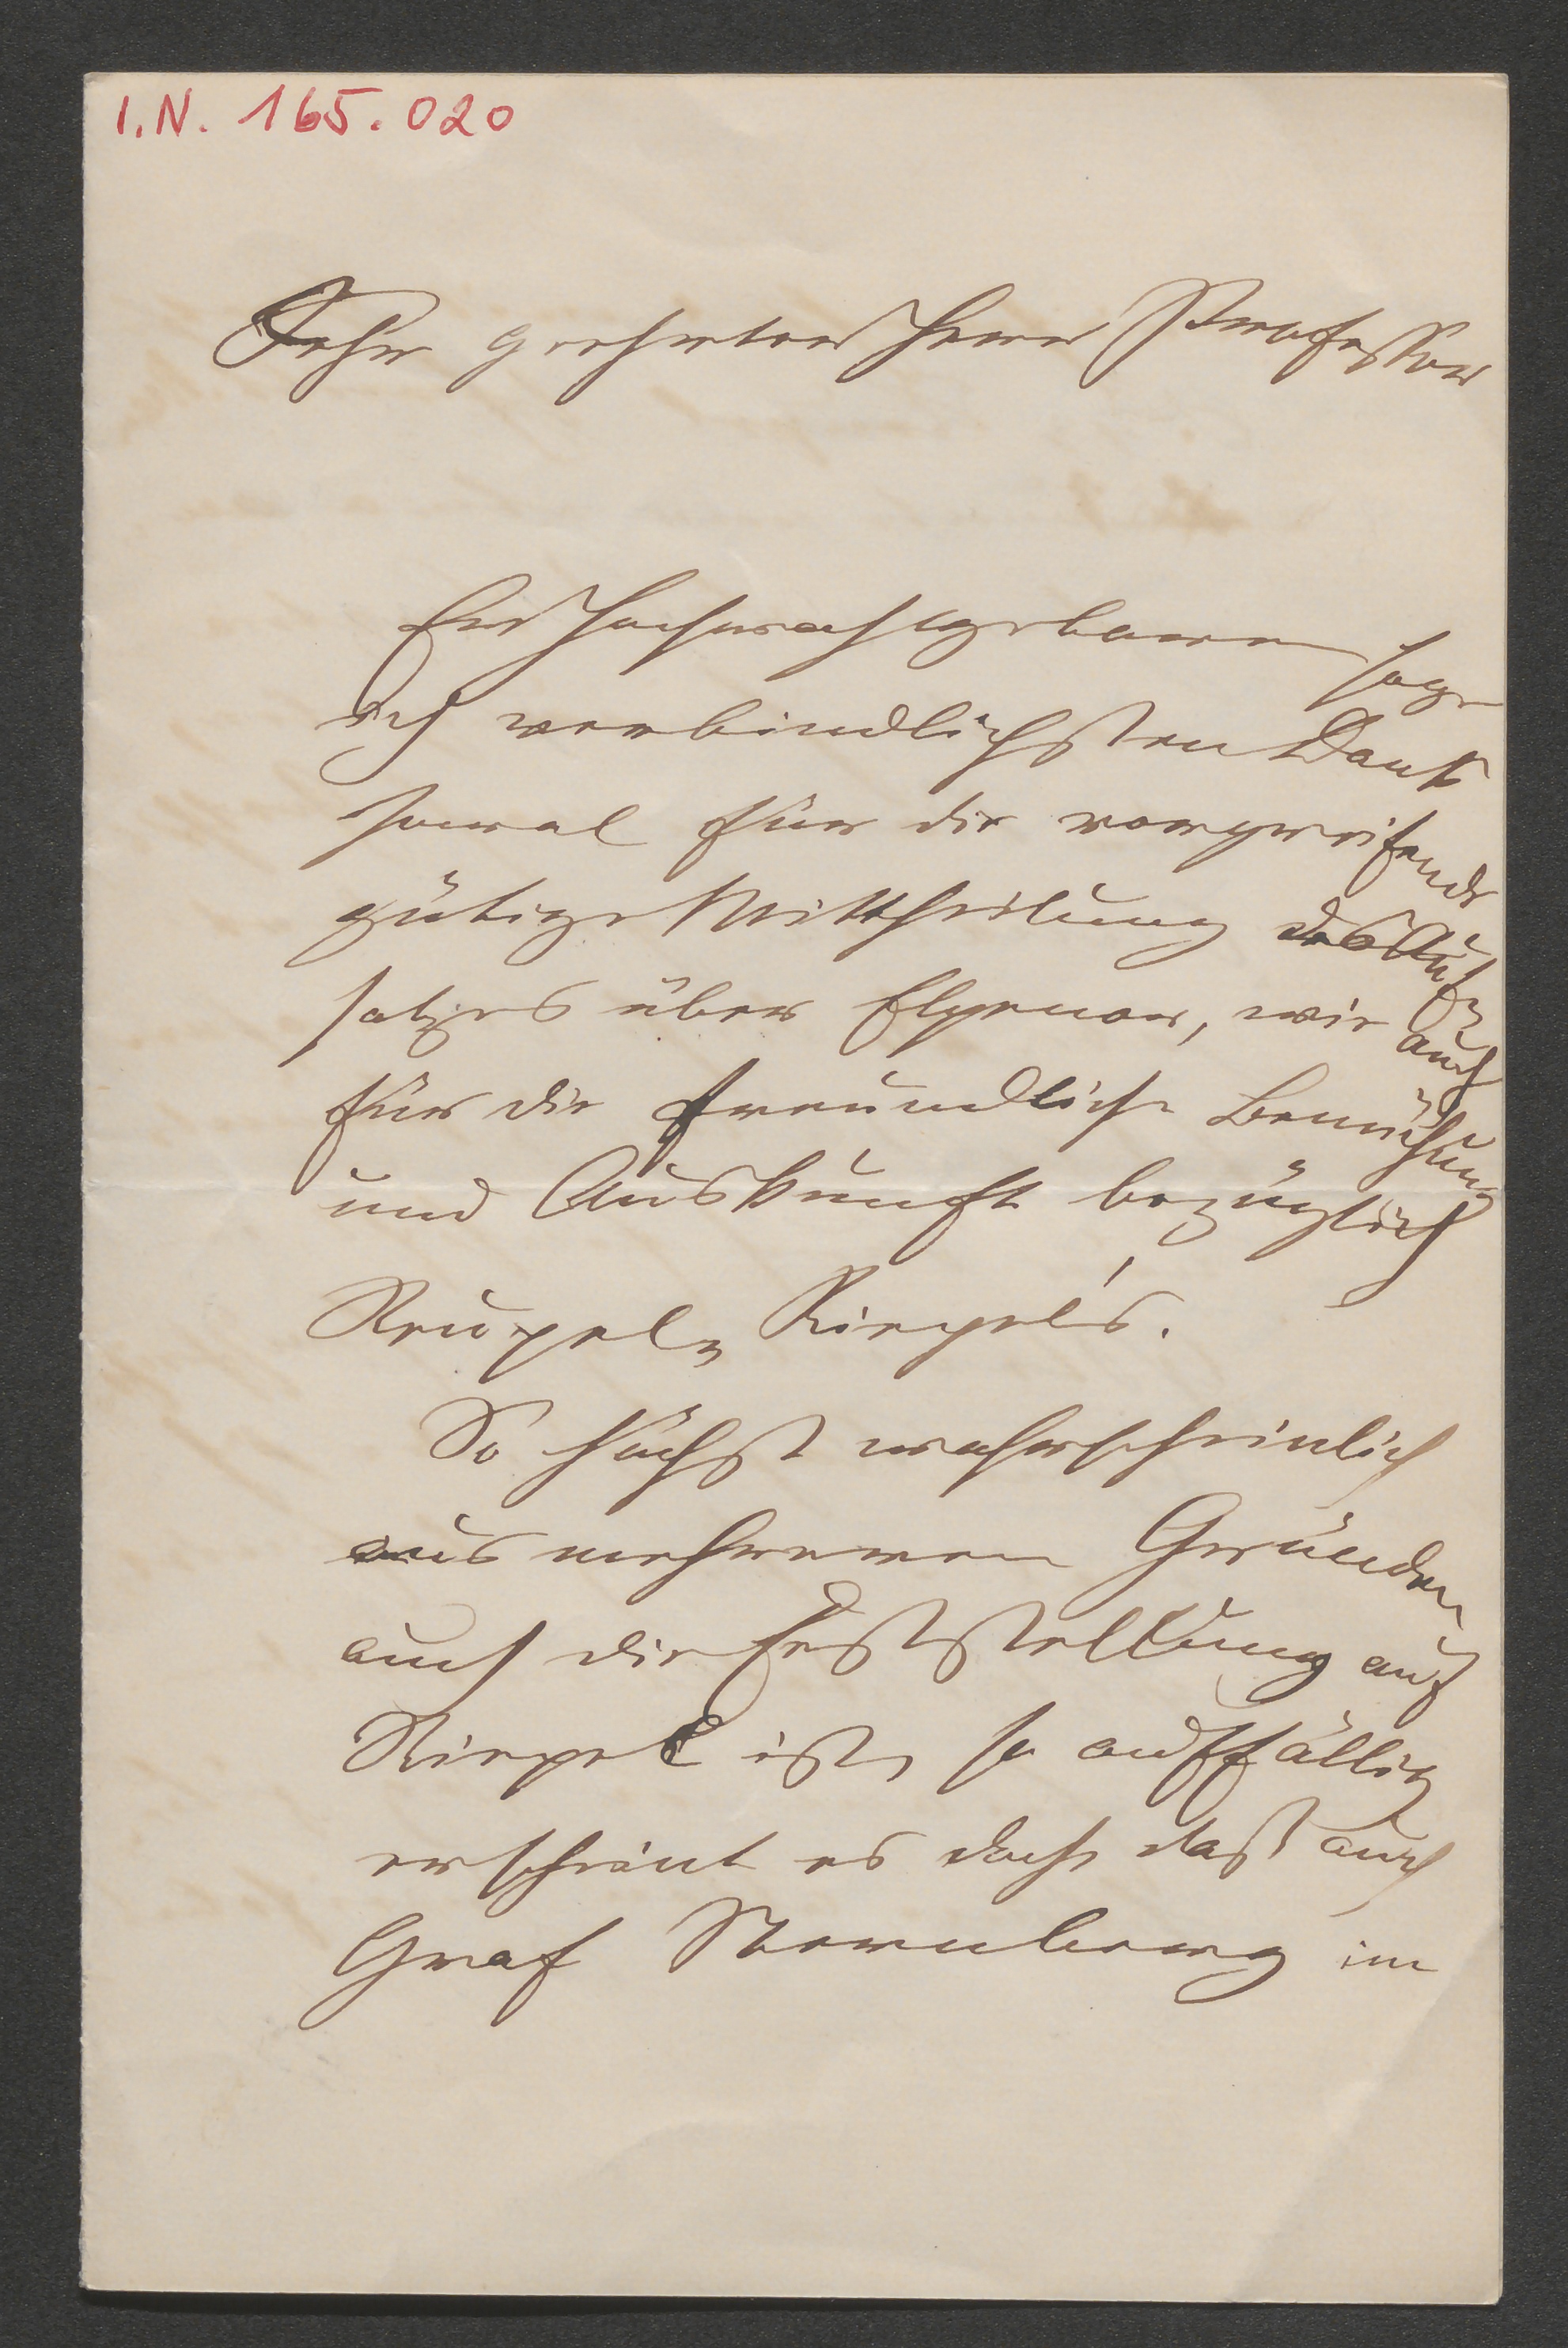 I.N. 165.020
Sehr geehrter Herr Professor
Euer Hochwohlgeboren sage
ich verbindlichsten Dank
sowol für die vorgreifende
gütige Mittheilung des Auf-
satzes über Elpenor, wie auch
für die freundliche Bemühung
und Auskunft bezüglich
Reupel, Riepel's.
So höchst wahrscheinlich
aus mehreren Gründen
auch die Feststellung auf
Riepel ist, so auffällig
erscheint es doch, daß auch
Graf Sternberg im